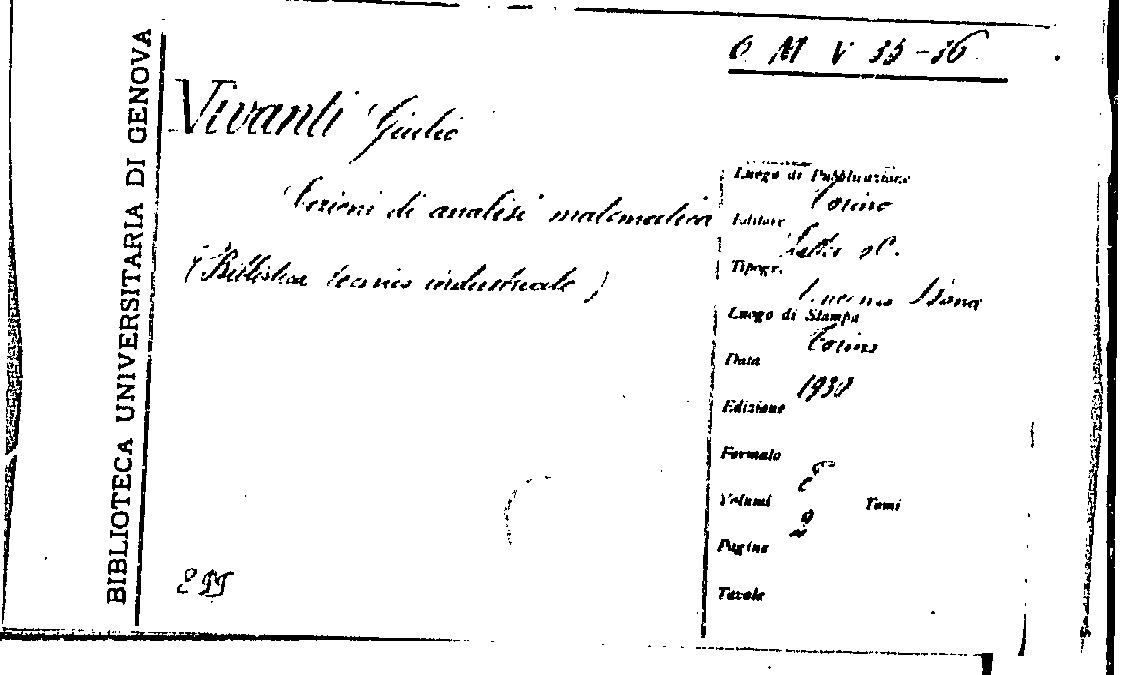 BIBLIOTECA UNIVERSITARIA DI GENOVA
O M V 35-36
Vivanti Giulio
Lezioni di analisi matematica
(Biblioteca tecnico industriale)
Luogo di Pubblicazione
Torino
Editore
Lattes e C.
Tipogr.
Luogo di Stampa
Torino
Data
1930
Edizione
Formato
8°
Volumi Tomi
2
Pagine
Tavole